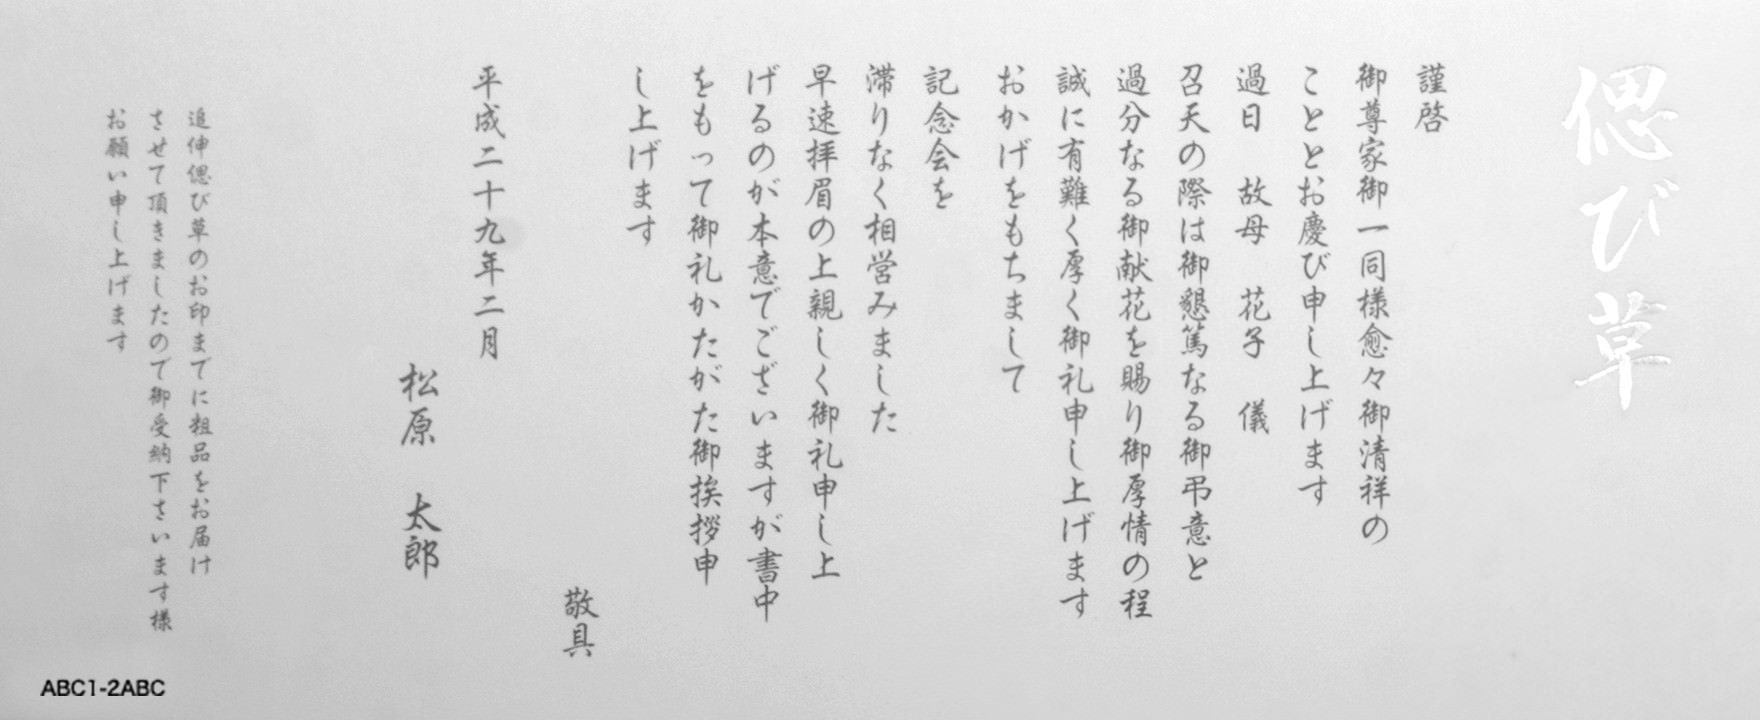 偲び草
謹啓
御尊家御一同様愈々御清祥の
こととお慶び申し上げます
過日　故母　花子　儀
召天の際は御懇篤なる御弔意と
過分なる御献花を賜り御厚情の程
誠に有難く厚く御礼申し上げます
おかげをもちまして
記念会を
滞りなく相営みました
早速拝眉の上親しく御礼申し上
げるのが本意でございますが書中
をもって御礼かたがた御挨拶申
し上げます
敬具
平成二十九年二月
松原　太郎
追伸偲び草のお印までに粗品をお届け
させて頂きましたので御受納下さいます様
お願い申し上げます
ABC1-2ABC